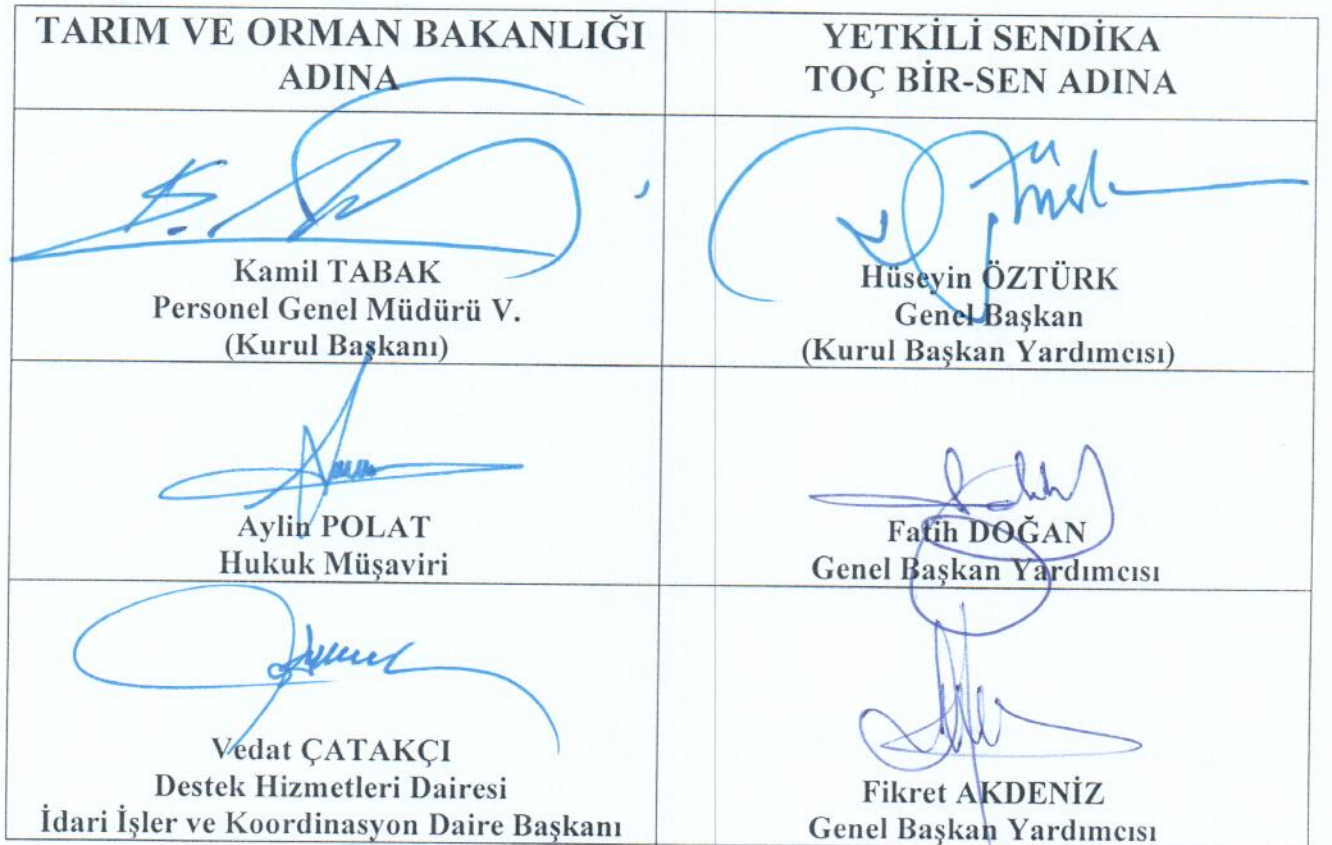 TARIM VE ORMAN BAKANLIĞI
ADINA
YETKİLİ SENDİKA
TOÇ BİR-SEN ADINA
Kamil TABAK
Personel Genel Müdürü V.
(Kurul Başkanı)
Hüseyin ÖZTÜRK
Genel Başkan
(Kurul Başkan Yardımcısı)
Aylin POLAT
Hukuk Müşaviri
Fatih DOĞAN
Genel Başkan Yardımcısı
Vedat ÇATAKÇI
Destek Hizmetleri Dairesi
İdari İşler ve Koordinasyon Daire Başkanı
Fikret AKDENİZ
Genel Başkan Yardımcısı